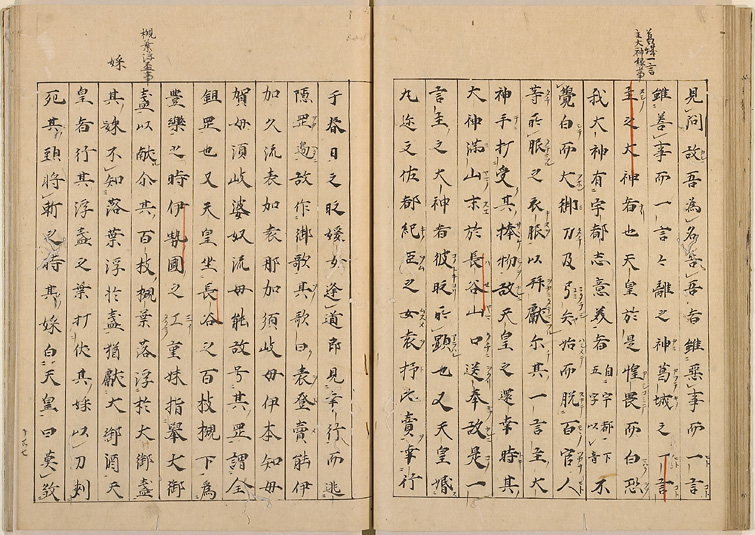 葛城一言
主大神顕事
見問故吾爲名告吾者雖惡事而一言
雖善事而一言言離之神葛城之一言
主之大神者也天皇於是惶畏而白恐
我大神有宇都志意美者自宇都下五字以音不
覺白而大御刀及弓矢始而脱百官人
等所服之衣服以拜獻尓其一言主大
神手打受其捧物故天皇之還幸時其
大神満山末於長谷山口送奉故是一
言主之大神者彼時所顕也又天皇婚
丸迩之佐都紀臣之女袁抒比賣幸行
于春日之時媛女逢道即見幸行而逃
隠岡邊故作御歌其歌曰袁登賣能伊
加久流袁加袁那加須岐母伊本知母
賀母須岐婆奴流母能故号其岡謂金
鉏岡也又天皇坐長谷之百枝槻下爲
豊樂之時伊勢國之三重婇指擧大御
盞以献尓其百枝槻葉落浮於大御盞
其婇不知落葉浮於盞猶獻大御酒天
皇看行其浮盞之葉打伏其婇以刀刺
死其頚將斬之時其婇白天皇曰莫殺
槻葉浮盞事
婇